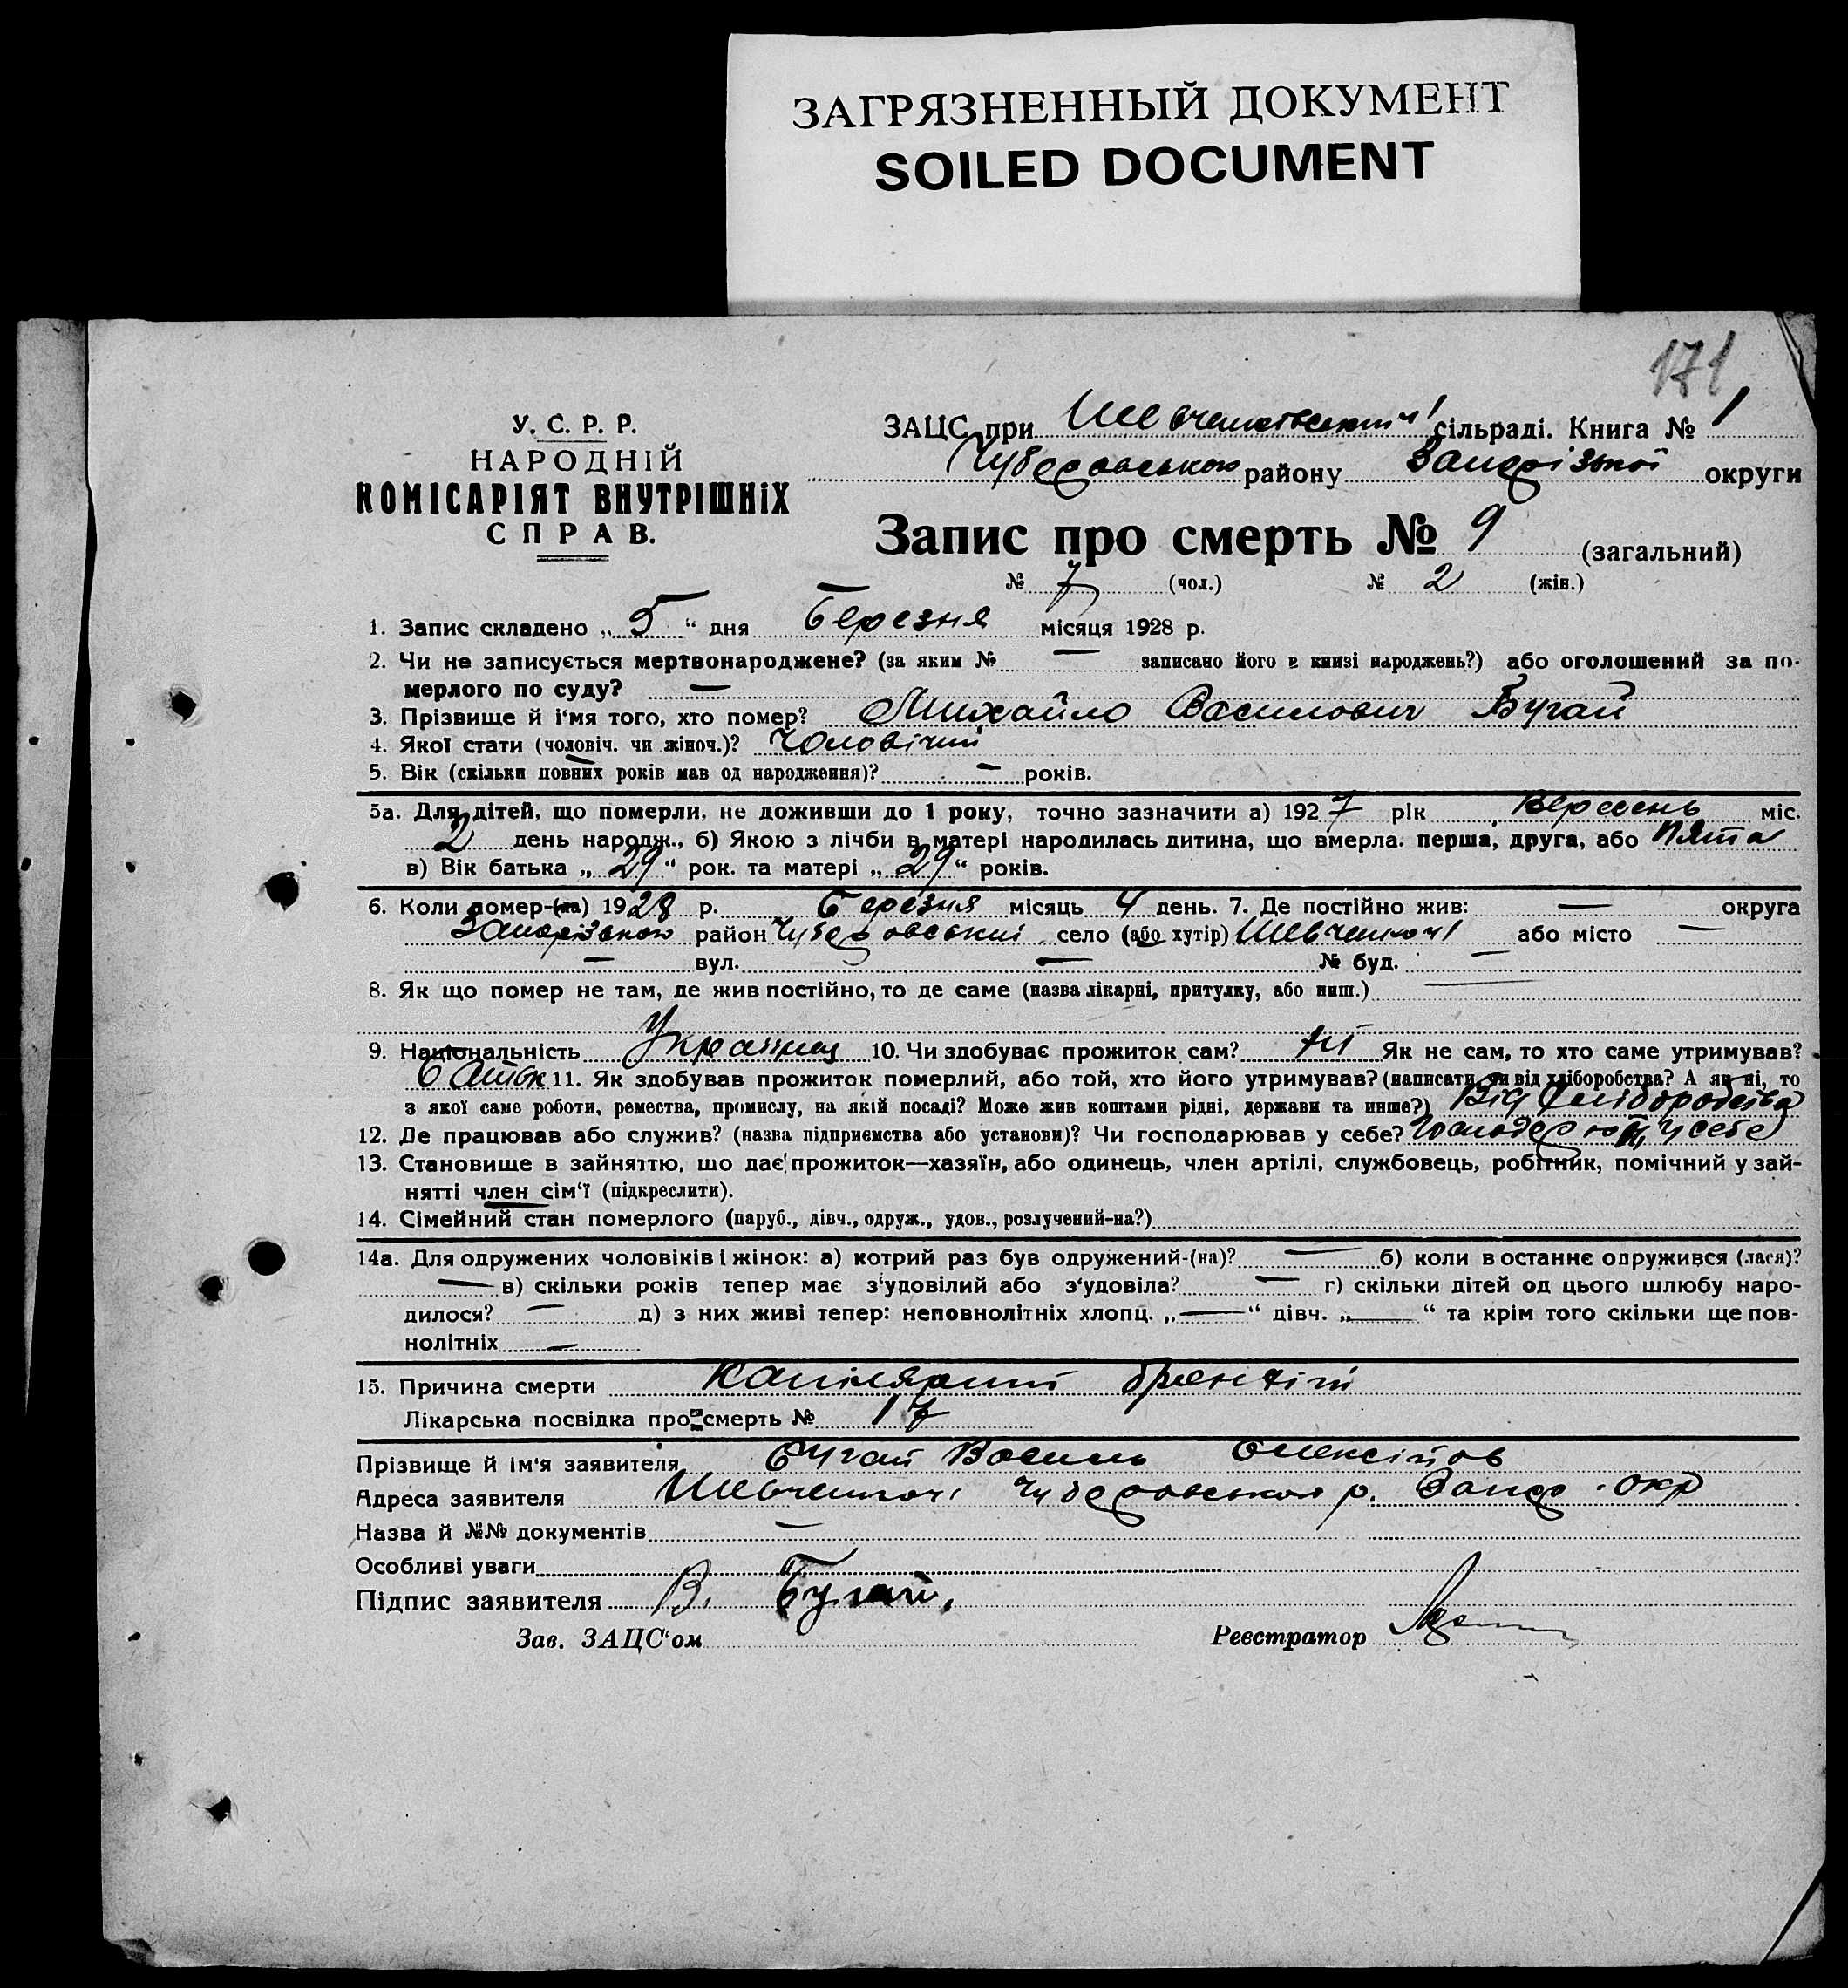 ЗАГРЯЗНЕННЫЙ ДОКУМЕНТ
SOILED DOCUMENT
171
У. С. Р. Р.
НАРОДНІЙ
КОМІСАРІЯТ ВНУТРІШНІХ
СПРАВ.
ЗАЦС при Шевченківській сільраді. Книга № 1
Чубарівського району Запорізької округи
Запис про смерть № 9 (загальний)
№ 7 (чол.) № 2 (жін.)
1. Запис складено „ 5 “ дня Березня місяця 1928 р.
2. Чи не записується мертвонароджене? (за яким № — записано його в книзі народжень?) або оголошений за по-
мерлого по суду? —
3. Прізвище й і'мя того, хто помер? Михайло Василович Бугай
4. Якої стати (чоловіч. чи жіноч.)? Чоловічий
5. Вік (скільки повних років мав од народження)? — років.
5а. Для дітей, що померли, не доживши до 1 року, точно зазначити а) 1927 рік Вересень міс.
2 день народж., б) Якою з лічби в матері народилась дитина, що вмерла. перша, друга, або Пята
в) Вік батька „ 29 “ рок. та матері „ 29 “ років.
6. Коли помер-(ла) 1928 р. Березня місяць 4 день. 7. Де постійно жив: — округа
Запорізькою район Чубаровський село (або хутір) Шевченкові або місто —
— вул. — № буд. —
8. Як що помер не там, де жив постійно, то де саме (назва лікарні, притулку, або инш.) —
9. Національність Українец 10. Чи здобуває прожиток сам? ні Як не сам, то хто саме утримував?
батьк 11. Як здобував прожиток померлий, або той, хто його утримував? (написати чи від хліборобства? А як ні, то
з якої саме роботи, ремества, промислу, на якій посаді? Може жив коштами рідні, держави та инше?) Від хліборобства
12. Де працював або служив? (назва підприємства або установи)? Чи господарював у себе? у себе
13. Становище в зайняттю, що дає прожиток—хазяїн, або одинець, член артілі, службовець, робітник, помічний у зай-
нятті член сім'ї (підкреслити).
14. Сімейний стан померлого (паруб., дівч., одруж., удов., розлучений-на?)
14а. Для одружених чоловіків і жінок: а) котрий раз був одружений-(на)? — б) коли в останнє одружився (лася)?
— в) скільки років тепер має з'удовілий або з'удовіла? — г) скільки дітей од цього шлюбу наро-
дилося? — д) з них живі тепер: неповнолітніх хлопц. „ — “ дівч. „ — “ та крім того скільки ще пов-
нолітніх —
15. Причина смерти Капілярний бронхіт
Лікарська посвідка про смерть № 17
Прізвище й ім'я заявителя Бугай Василь Олексійов
Адреса заявителя Шевченкові Чубаровського р. Запор. окр
Назва й №№ документів —
Особливі уваги
Підпис заявителя В. Бугай.
Зав. ЗАЦС'ом Реєстратор